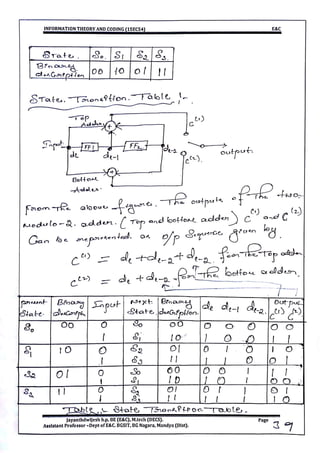 INFORMATION THEORY AND CODING (15EC54) E&C
State. S0 S1 S2 S3
Binary description 00 10 01 11
State Transition Table :-
Top Adder
C(1)
Input FF1 FF2 dt-2 output
dt dt-1
C(2)
Bottom adder
From the above figure. The outputs of the two
Modulo-2 adder. (Top and bottom adder) C(1) and C(2)
Can be represented as o/p sequence given by
C(1) = dt + dt-1 + dt-2 for the Top adder
C(2) = dt + dt-2 for the bottom adder.
present State Binary Input Next State Binary description dt dt-1 dt-2 Output C(1) C(2)
S0 00 0 S0 00 0 0 0 0 0
1 S1 10 1 0 0 1 1
S1 10 0 S2 01 0 1 0 1 0
1 S3 11 1 1 0 0 1
S2 01 0 S0 00 0 0 1 1 1
1 S1 10 1 0 1 0 0
S3 11 0 S2 01 0 1 1 0 1
1 S3 11 1 1 1 1 0
Table: State Transition Table.
Jayanthdwijesh h.p, BE (E&C), M.tech (DECS). Page
Assistant Professor –Dept of E&C. BGSIT, BG Nagara, Mandya (Dist). 39